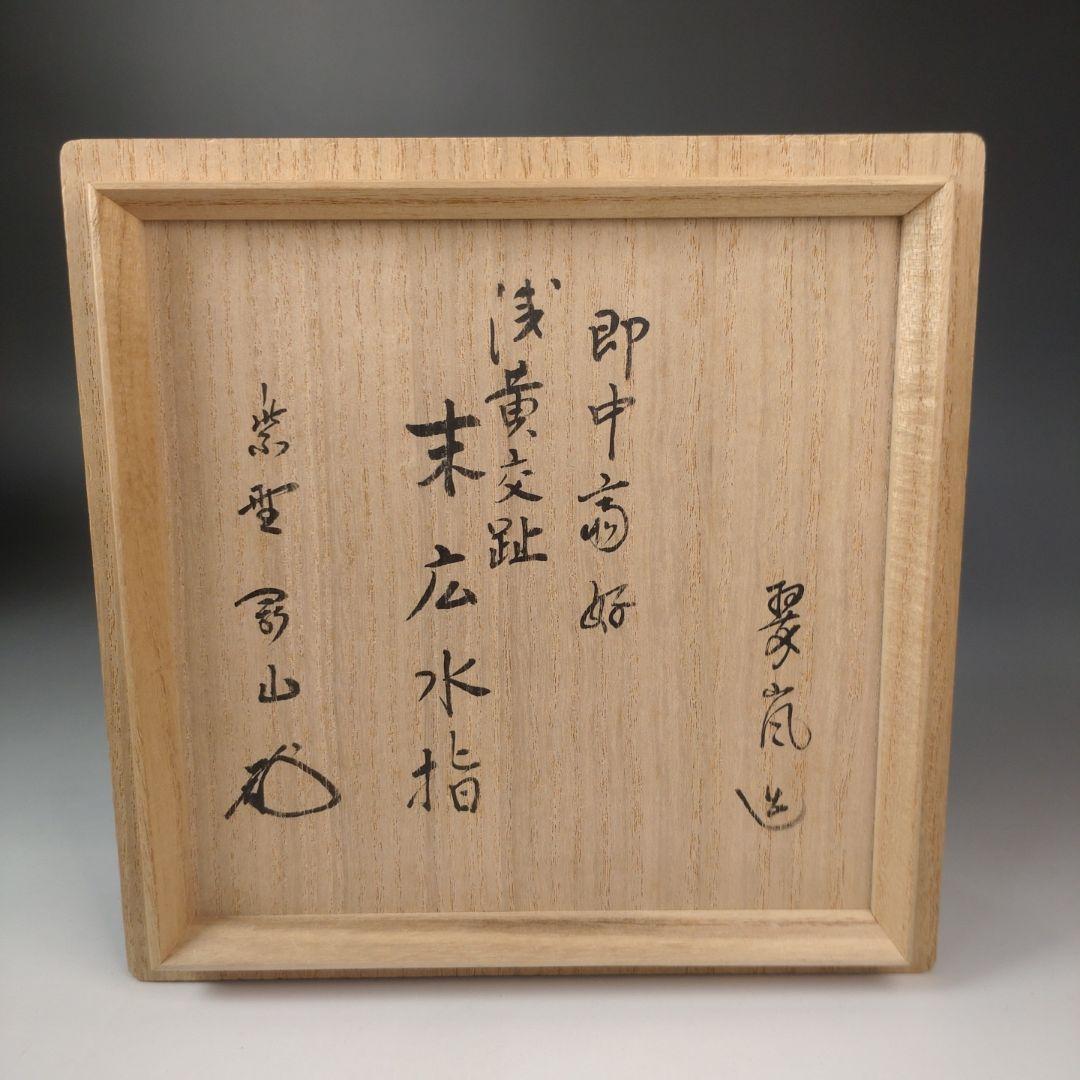 翠嵐造
即中斎好
浅黄交趾
末広水指
紫野剛山